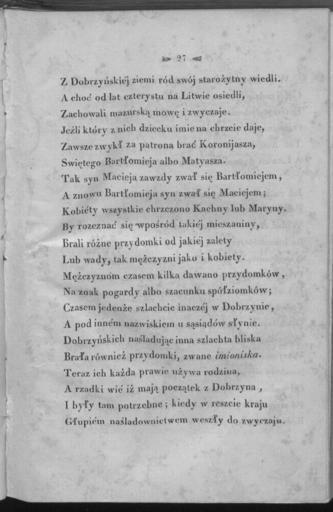 27
Z Dobrzyńskiéj ziemi ród swój starożytny wiedli.
A choć od lat czterystu na Litwie osiedli,
Zachowali mazurską mowę i zwyczaje.
Jeźli który z nich dziecku imie na chrzcie daje,
Zawsze zwykł za patrona brać Koronijasza,
Swiętego Bartłomieja albo Matyasza.
Tak syn Macieja zawzdy zwał się Bartłomiejem,
A znowu Bartłomieja syn zwał się Maciejem;
Kobiéty wszystkie chrzczono Kachny lub Maryny.
By rozeznać się wpośród takiéj mieszaniny,
Brali różne przydomki od jakiéj zalety
Lub wady, tak mężczyzni jako i kobiety.
Mężczyznom czasem kilka dawano przydomków,
Na znak pogardy albo szacunku spółziomków;
Czasem jedenże szlachcic inaczéj w Dobrzynie,
A pod inném nazwiskiem u sąsiądów słynie.
Dobrzyńskich naśladując inna szlachta bliska
Brała również przydomki, zwane imioniska.
Teraz ich każda prawie używa rodzina,
A rzadki wié iż mają początek z Dobrzyna,
I były tam potrzebne; kiedy w reszcie kraju
Głupiém naśladownictwem weszły do zwyczaju.